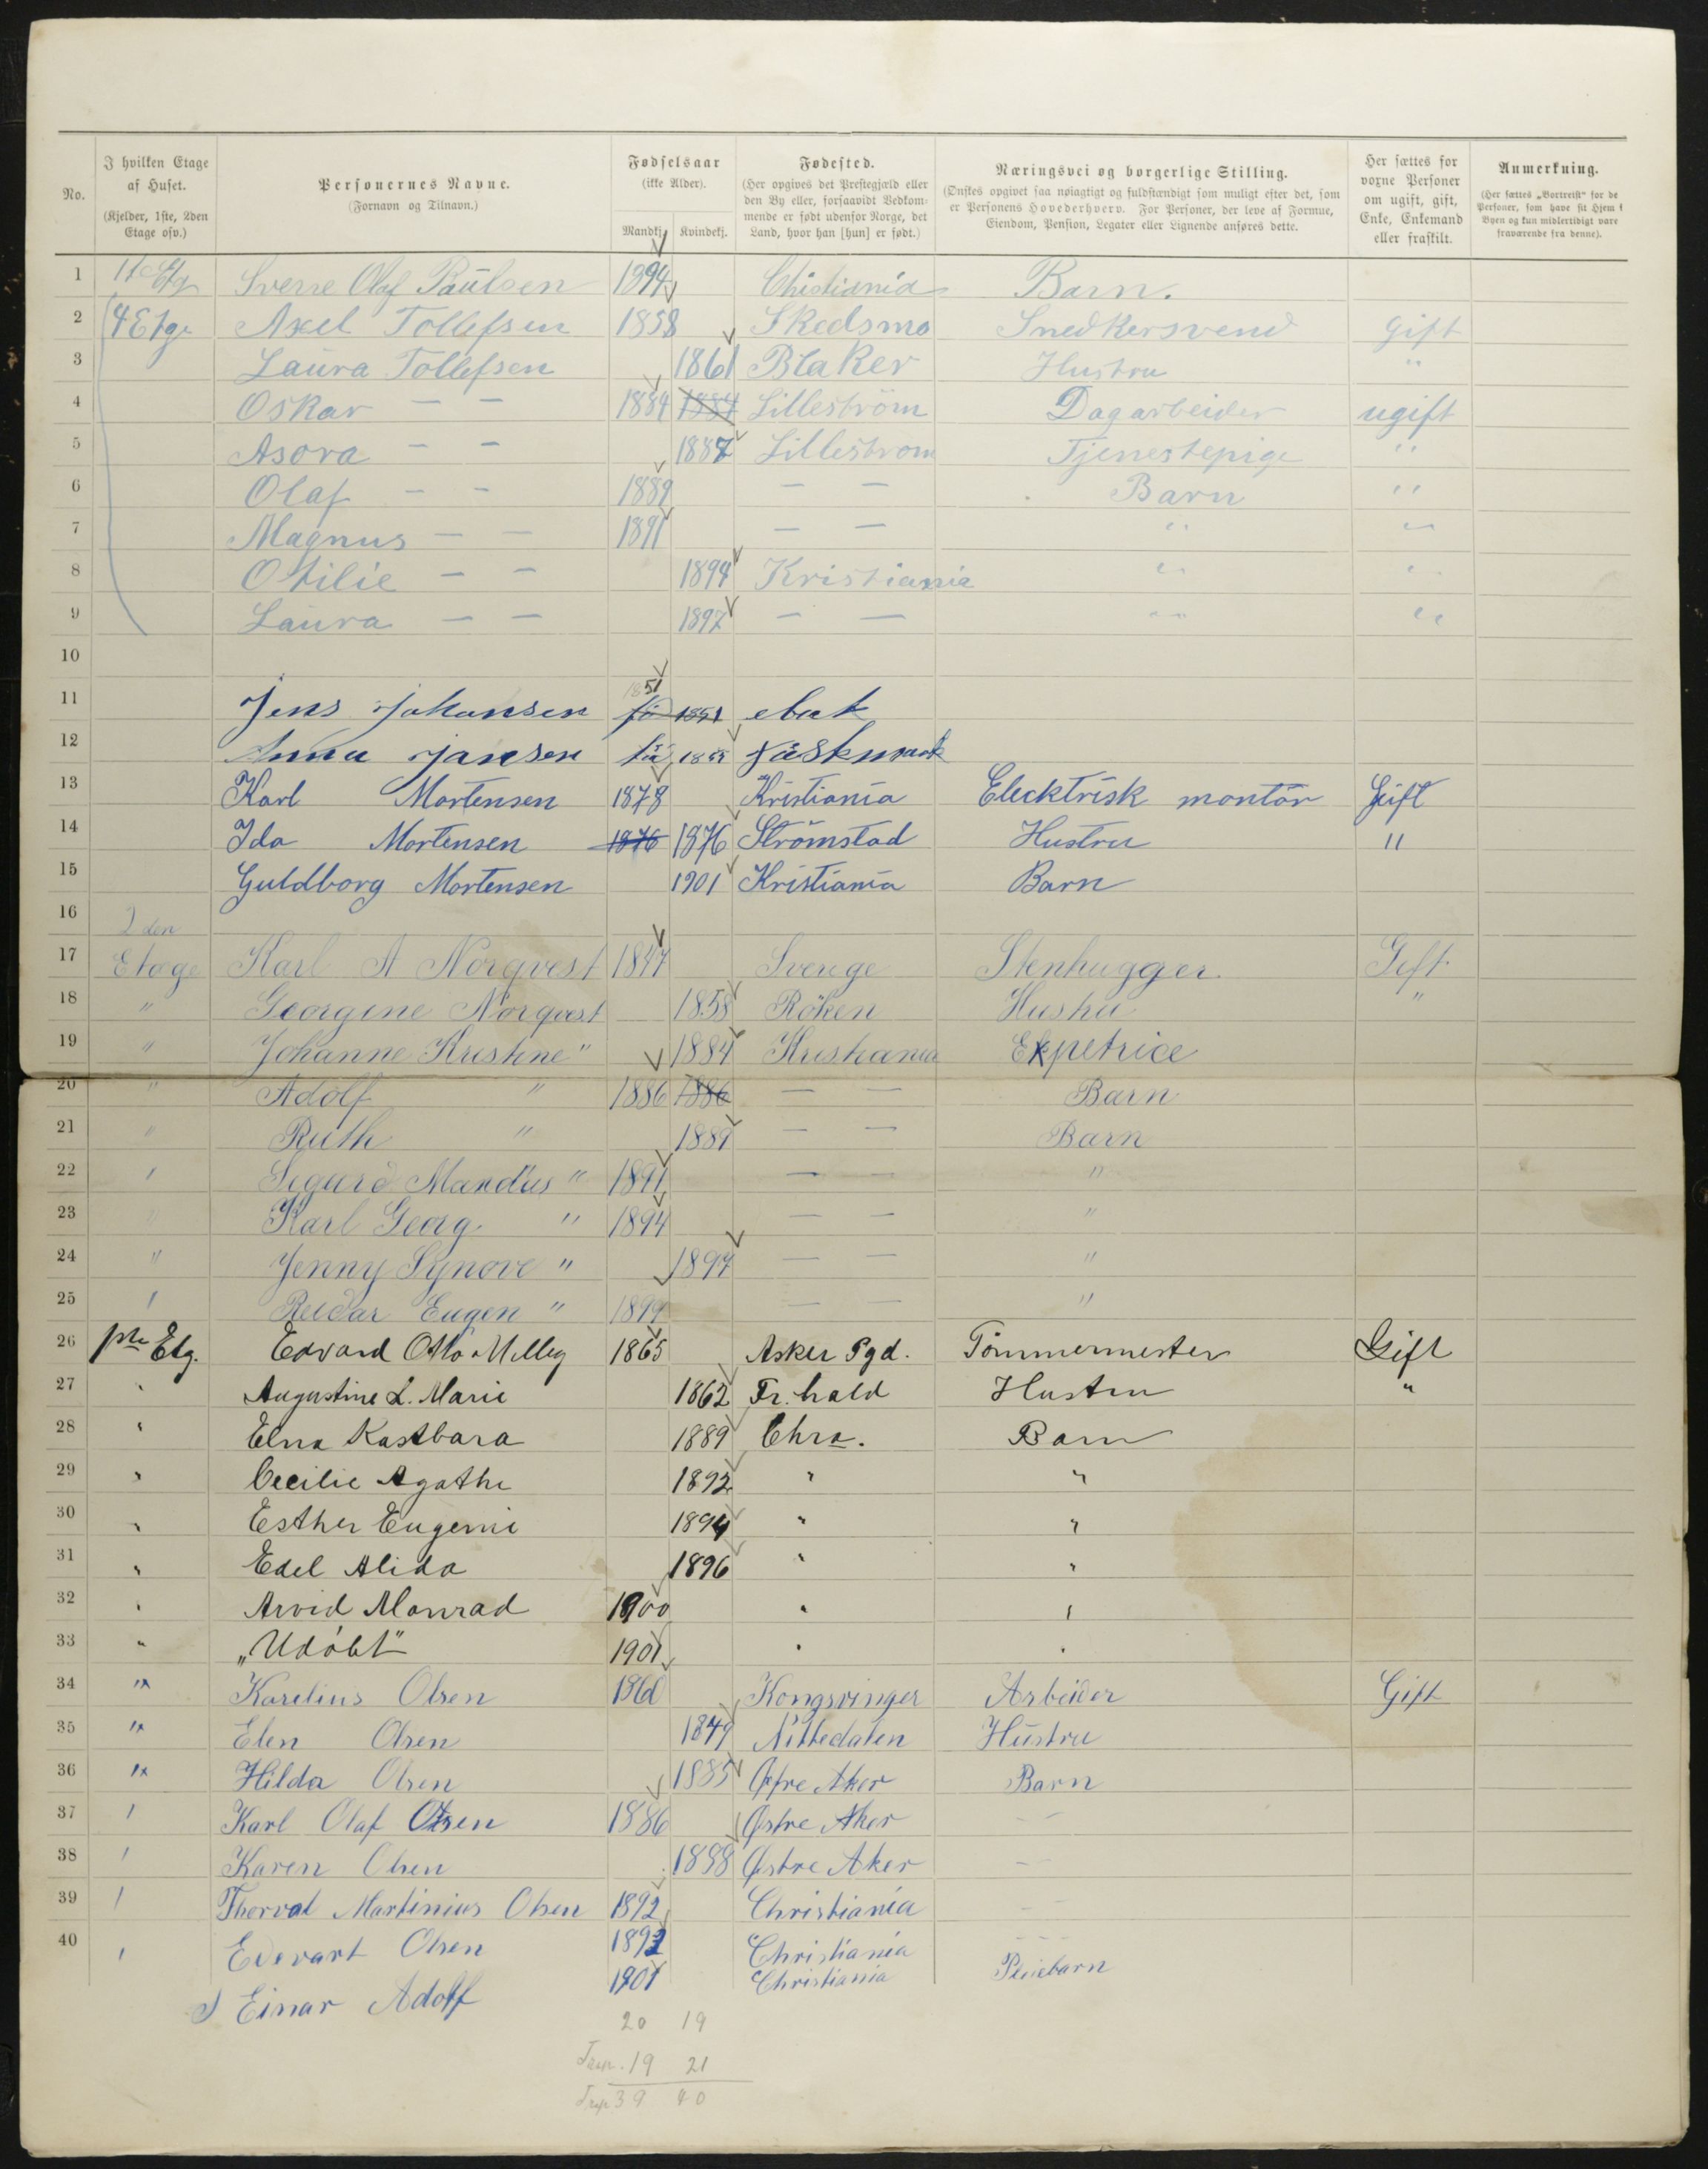 No. | I hvilken Etage af Huset. (Kjelder, 1ste, 2den Etage osv.) | Personernes Navne. (Fornavn og Tilnavn.) | Fødselsaar (ikke Alder). Mandkj. Kvindekj. | Fødested. (Her opgives det Prestegjæld eller den By eller, forsaavidt Vedkommende er født udenfor Norge, det Land, hvor han [hun] er født.) | Næringsvei og borgerlige Stilling. (Ønskes opgivet saa nøiagtigt og fuldstændigt som muligt efter det, som er Personens Hovederhverv. For Personer, der leve af Formue, Eiendom, Pension, Legater eller Lignende anføres dette. | Her sættes for voxne Personer om ugift, gift, Enke, Enkemand eller fraskilt. | Anmerkning. (Her sættes „Bortreist" for de Personer, som have sit Hjem i Byen og kun midlertidigt være fraværende fra denne).
1 1te Etg Sverre Olaf Paulsen 1894 Christiania Barn.
2 4 Etge Axel Tollefsen 1858 Skedsmo Snedkersvend gift
3 Laura Tollefsen 1861 Blaker Hustru "
4 Oskar — — 1884 1884 Lilleström Dagarbeider ugift
5 Asora — — 1887 Lillestrom Tjenestepige "
6 Olaf — — 1889 — — Barn "
7 Magnus — — 1891 — — " "
8 Otilie — — 1894 Kristiania " "
9 Laura — — 1897 — — " "
10
11 Jens Johansen 1851 1851
12 Anna Jansen
13 Karl Mortensen 1878 Kristiania Elecktrisk montör Gift
14 Ida Mortensen 1876 1876 Strömstad Hustru "
15 Guldborg Mortensen 1901 Kristiania Barn
16 2den
17 Etage Karl A Norqvest 1847 Sverige Stenhugger. Gift.
18 " Georgine Norqvest 1858 Röken Hustru "
19 " Johanne Kristine " 1884 Kristiania Expetrice
20 " Adolf " 1886 1886 — — Barn
21 " Ruth " 1889 — — Barn
22 " Sigurd Mandus " 1891 — — "
23 " Karl Georg " 1894 — — "
24 " Jenny Synove " 1897 — — "
25 " Reidar Eugen " 1899 — — "
26 1ste Etg. Edvard Otto Milleg 1865 Asker Pgd. Tömmermester Gift
27 " Augustine L. Marie 1862 Fr. hald Hustru "
28 " Elna Kastbara 1889 Chra. Barn
29 " Cecilie Agathe 1892 " "
30 " Esther Eugenie 1894 " "
31 " Edel Alida 1896 " "
32 " Arvid Monrad 1900 " "
33 " „Udöbt" 1901 " "
34 " Karelius Olsen 1860 Kongsvinger Arbeider Gift
35 " Elen Olsen 1849 Nittedalen Hustru
36 " Hilda Olsen 1885 Østre Aker Barn
37 " Karl Olaf Olsen 1886 Østre Aker —
38 " Karen Olsen 1888 Østre Aker —
39 " Thorval Martinius Olsen 1892 Christiania —
40 " Edevart Olsen 1892 Christiania — — —
Einar Adolf 1901 Christiania Pleiebarn
20 19
19 21
39 40